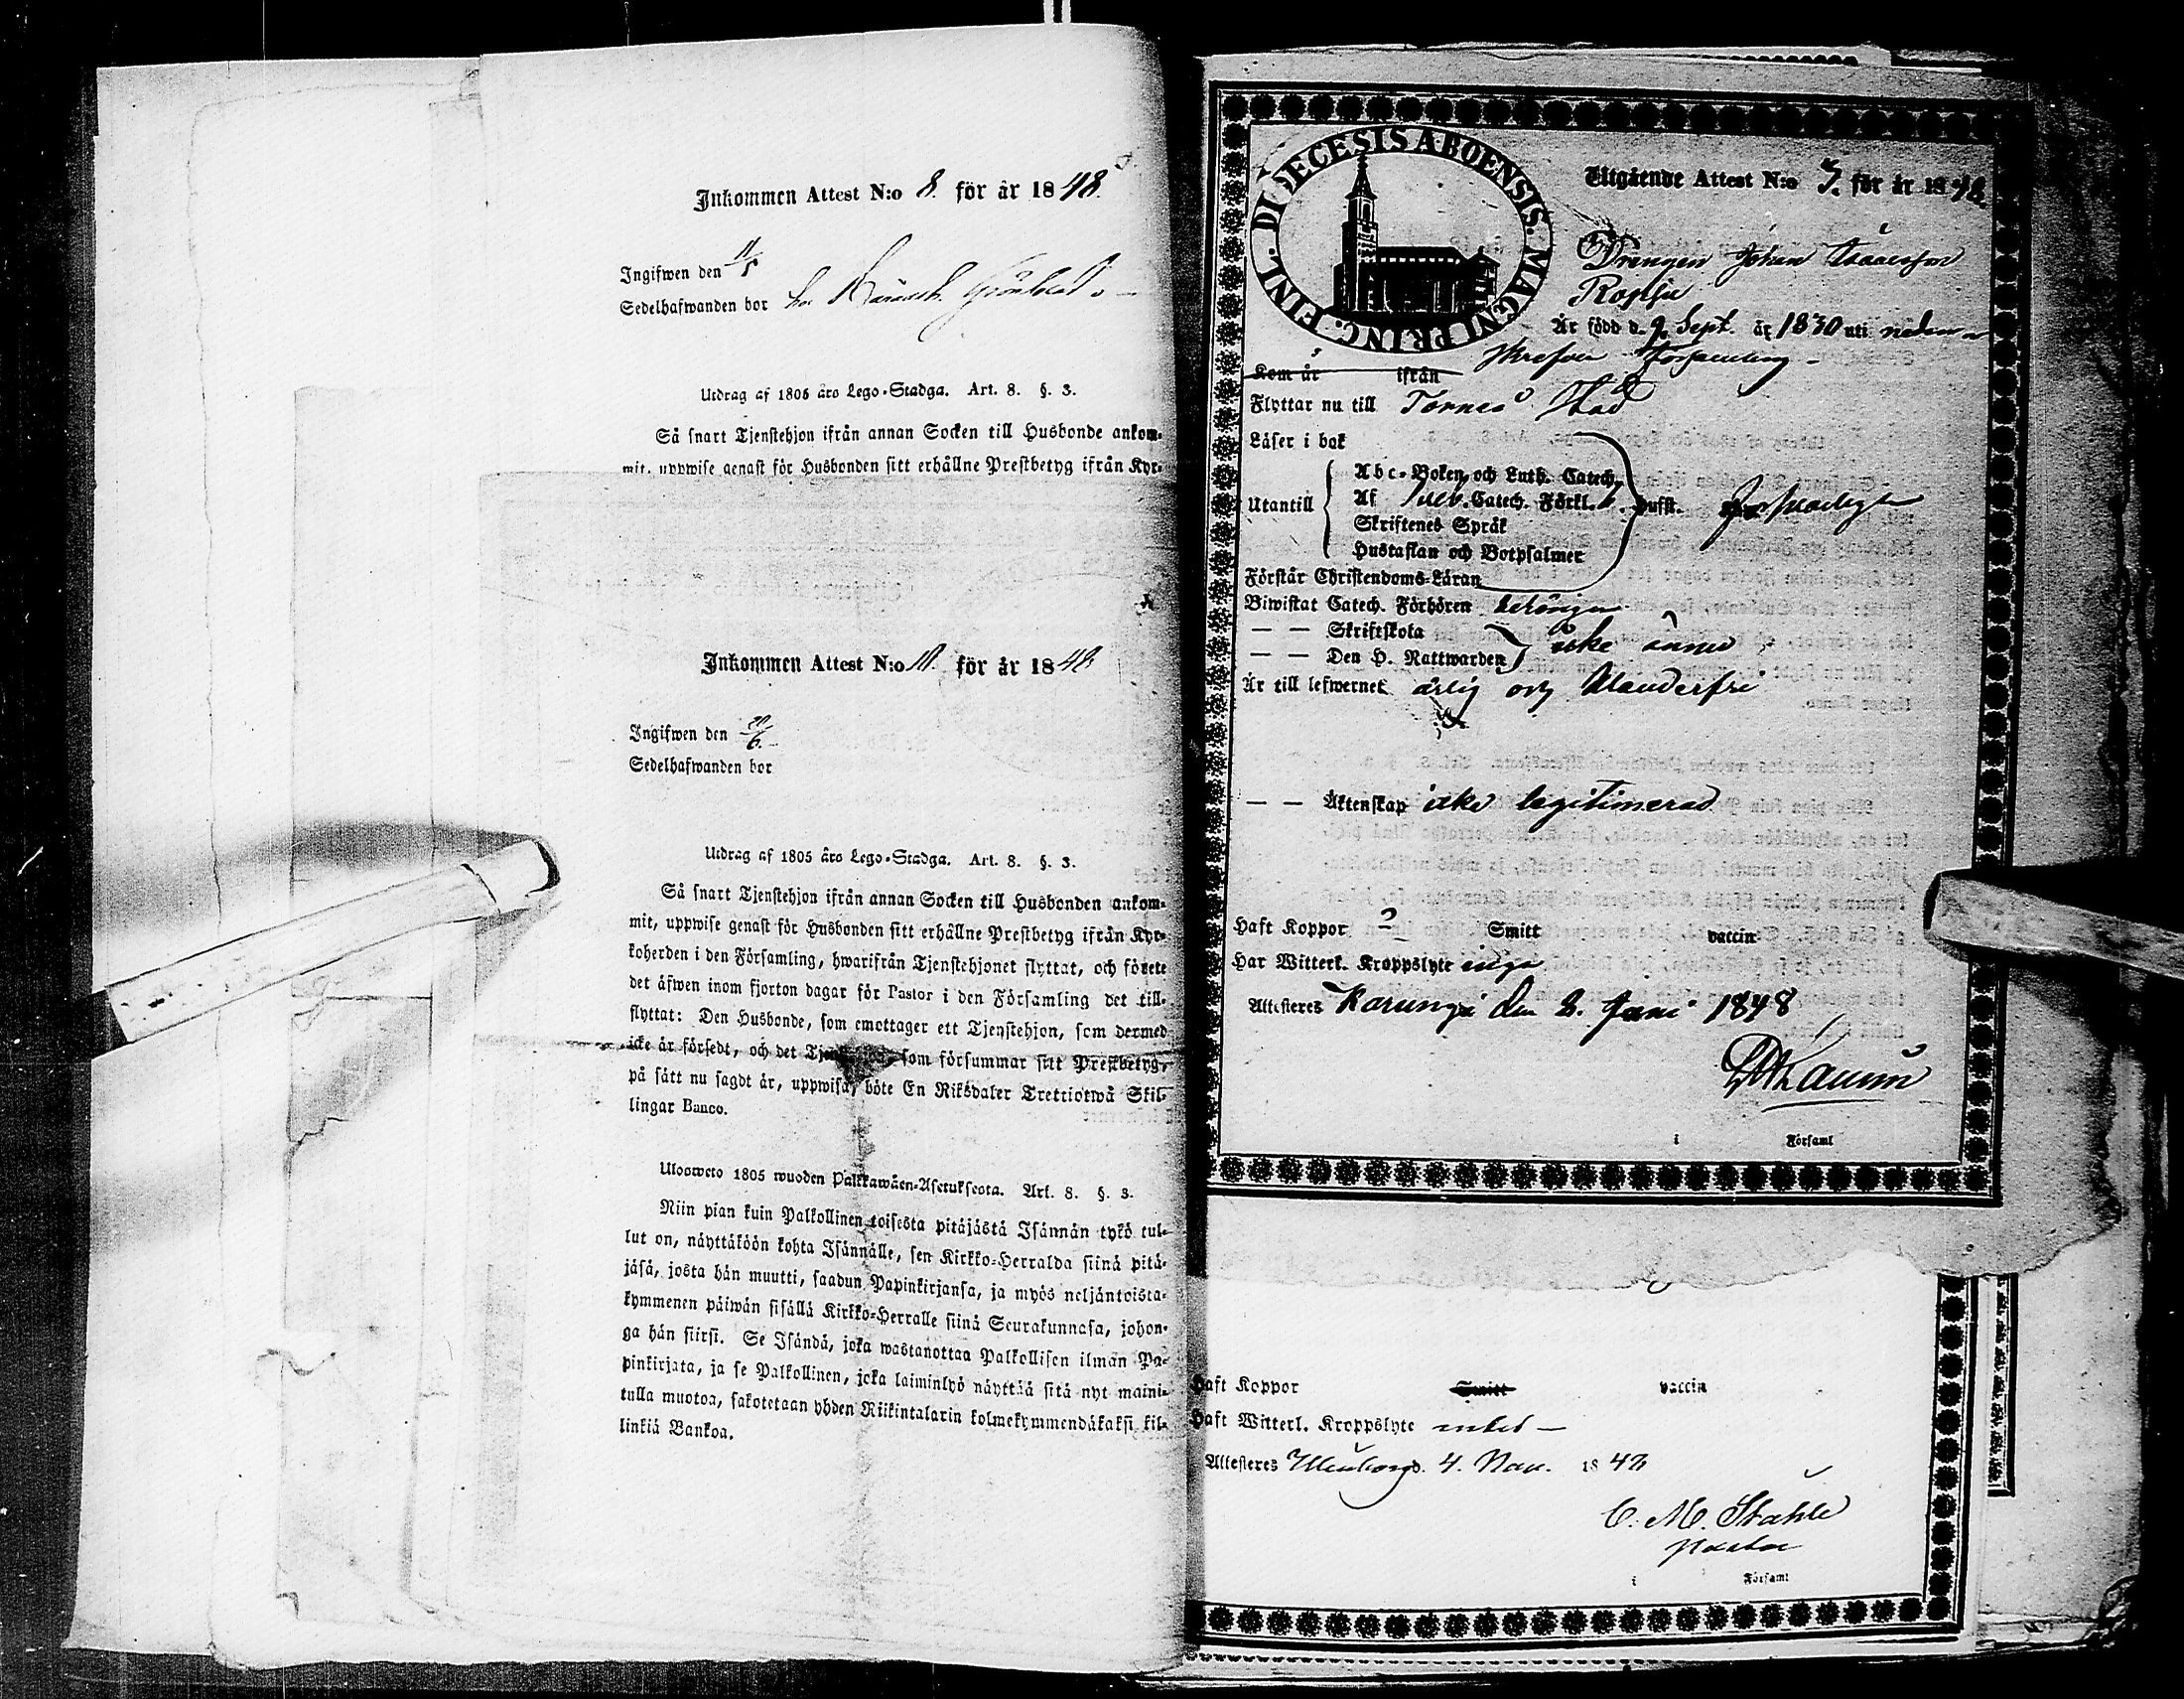 Inkommen Attest N:o 8. för år 1848.
Ingifwen den 11/5
Sedelhafwanden bor hos
Utdrag af 1805 års Lego-Stadga. Art. 8. §. 3.
Så snart Tjenstehjon ifrån annan Socken till Husbonde ankom-
mit, uppwise genast för Husbonden sitt erhållne Prestbetyg ifrån Kyr-
Inkommen Attest N:o för år 1848
Ingifwen den
Sedelhafwanden bor
Utdrag af 1805 års Lego-Stadga. Art. 8. §. 3.
Så snart Tjenstehjon ifrån annan Socken till Husbonden ankom-
mit, uppwise genast för Husbonden sitt erhållne Prestbetyg ifrån Kyr-
koherden i den Församling, hwarifrån Tjenstehjonet flyttat, och förete
det äfwen inom fjorton dagar för Pastor i den Församling det till-
flyttat: Den Husbonde, som emottager ett Tjenstehjon, som dermed
icke är försedt, och det som försummar sitt Prestbetyg,
på sätt nu sagdt är, uppwisa, böte En Riksdaler Trettiotwå Skil-
lingar Banco.
Uloswето 1805 wuoden Palkkawäen-Asetuksesta. Art. 8. §. 3.
Niin pian kuin Palkollinen toisesta pitäjästä Isännän tykö tul-
lut on, näyttäköön kohta Isännälle, sen Kirkko-Herralda siinä pitä-
jäsä, josta hän muutti, saadun Papinkirjansa, ja myös neljäntoista-
kymmenen päiwän sisällä Kirkko-Herralle siinä Seurakunnasa, johon-
ga hän siirsi. Se Isändä, joka wastanottaa Palkollisen ilman Pa-
pinkirjata, ja se Palkollinen, joka laiminlyö näyttää sitä nyt maini-
tulla muotoa, sakotetaan yhden Riikintalarin kolmekymmendäkaksi kil-
linkiä Bankoa.
FINL. DIŒCESIS ABOENSIS. MAGNI PRINC.
Utgående Attest N:o 7. för år 1848.
Drengen Johan Isaacsson
Ropsu
Är född d. 9 Sept. år 1830 uti nedan-
skrefven Församling -
Kom år ifrån
Flyttar nu till Torneå Stad
Läser i bok
Utantill
Abc-Boken och Luth. Catech.
Af Catech. Förkl. Hufst.
Skriftenes Språk
Hustaflan och Botpsalmer
Förstår Christendoms-Läran
Biwistat Catech. Förhören
— — Skriftskola
— — Den H. Nattwarden icke ännu
Är till lefwernet ärlig och klanderfri
— — Äktenskap icke legitimerad
Haft Koppor ? Smitt vaccin
Har Witterl. Kroppslyte inga
Attesteres Karungi den 2. Juni 1848
i Församl
Haft Koppor Smitt vaccin
Haft Witterl. Kroppslyte intet —
Attesteres Uleåborg d. 4. Nov. 1848
C. M. Ståhle
Pastor
i Församl